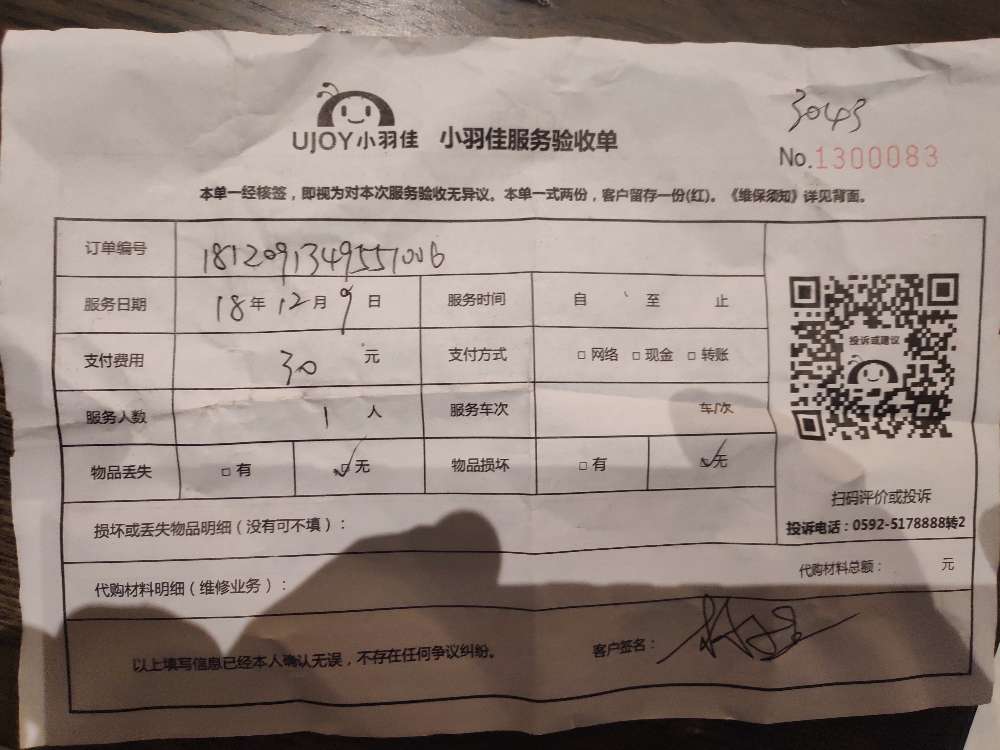 3043
UJOY小羽佳 小羽佳服务验收单
No.1300083
本单一经核签，即视为对本次服务验收无异议。本单一式两份，客户留存一份(红)。《维保须知》详见背面。
订单编号 1812091349551006
服务日期 18年12月9日 服务时间 自 至 止
投诉或建议
支付费用 30 元 支付方式 □ 网络 □ 现金 □ 转账
服务人数 1 人 服务车次 车/次
物品丢失 □ 有 ☑ 无 物品损坏 □ 有 ☑ 无
扫码评价或投诉
投诉电话：0592-5178888转2
损坏或丢失物品明细（没有可不填）：
代购材料明细（维修业务）： 代购材料总额： 元
以上填写信息已经本人确认无误，不存在任何争议纠纷。 客户签名：